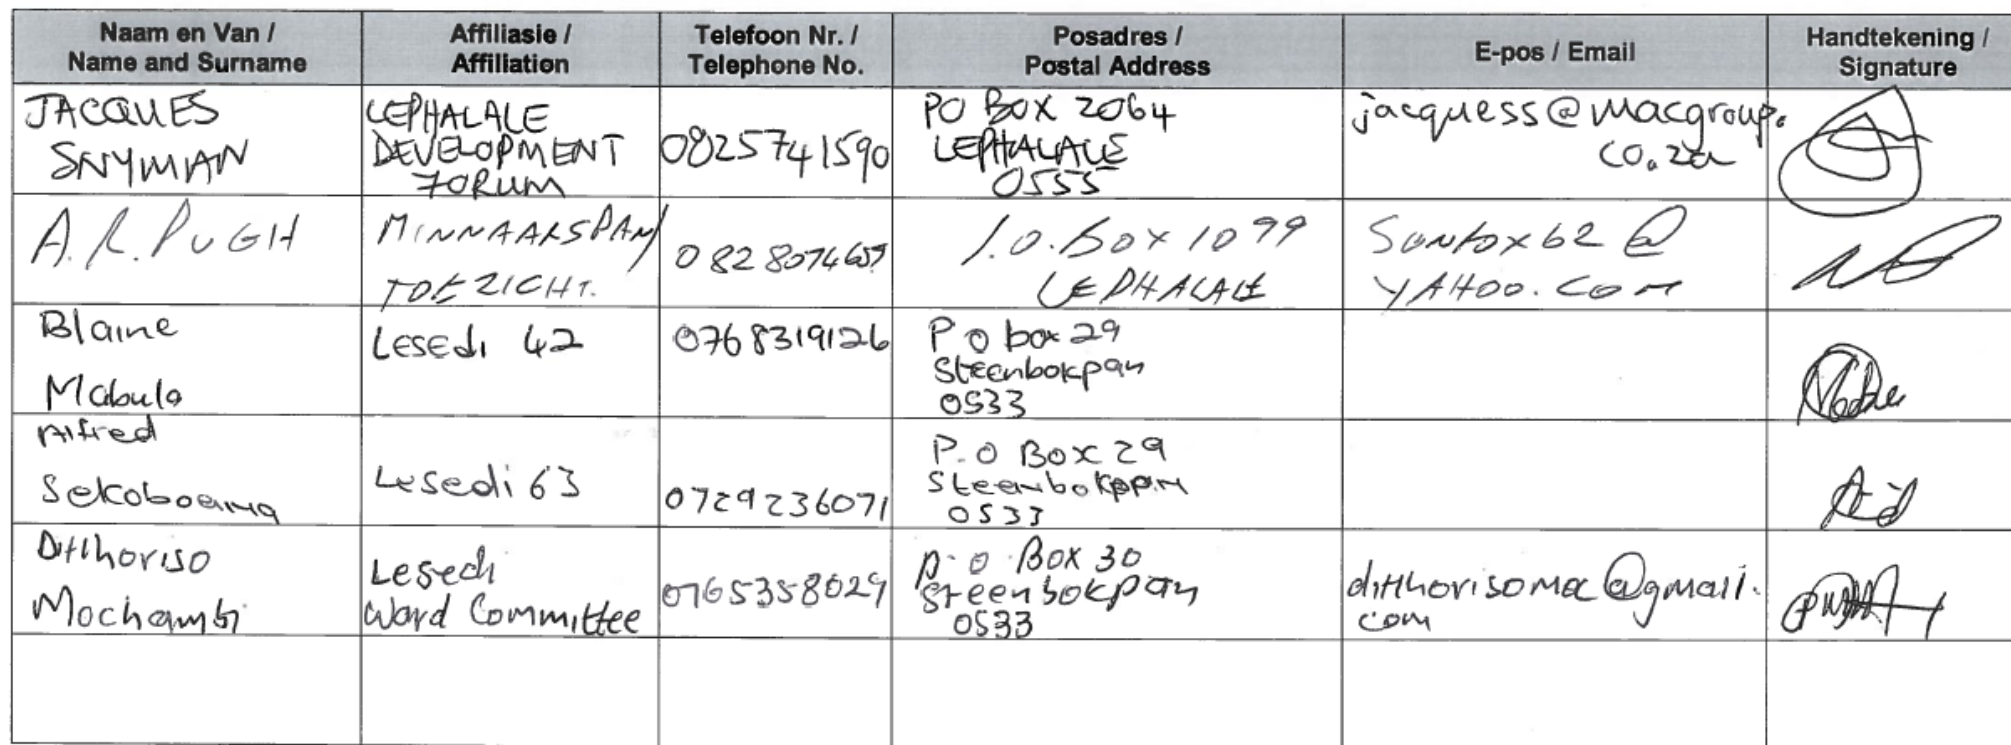 Naam en Van / Name and Surname | Affiliasie / Affiliation | Telefoon Nr. / Telephone No. | Posadres / Postal Address | E-pos / Email | Handtekening / Signature
JACQUES SNYMAN | LEPHALALE DEVELOPMENT FORUM | 0825741590 | PO BOX 2064 LEPHALALE 0555 | jacquess@macgroup.co.za
A.R. PUGH | MINNAARSPAN/ TOEZICHT. | P.O. BOX 1099 LEPHALALE | Sunfox62@ YAHOO.COM
Blaine Mabula | Lesedi 42 | 0768319126 | P O box 29 Steenbokpan 0533
Alfred Sekoboana | Lesedi 63 | 0729236071 | P.O Box 29 Steenbokpan 0533
Ditlhoriso Mochambi | Lesedi Ward Committee | 0765358029 | P.O.Box 30 Steenbokpan 0533 | ditlhorisomoc@gmail.com